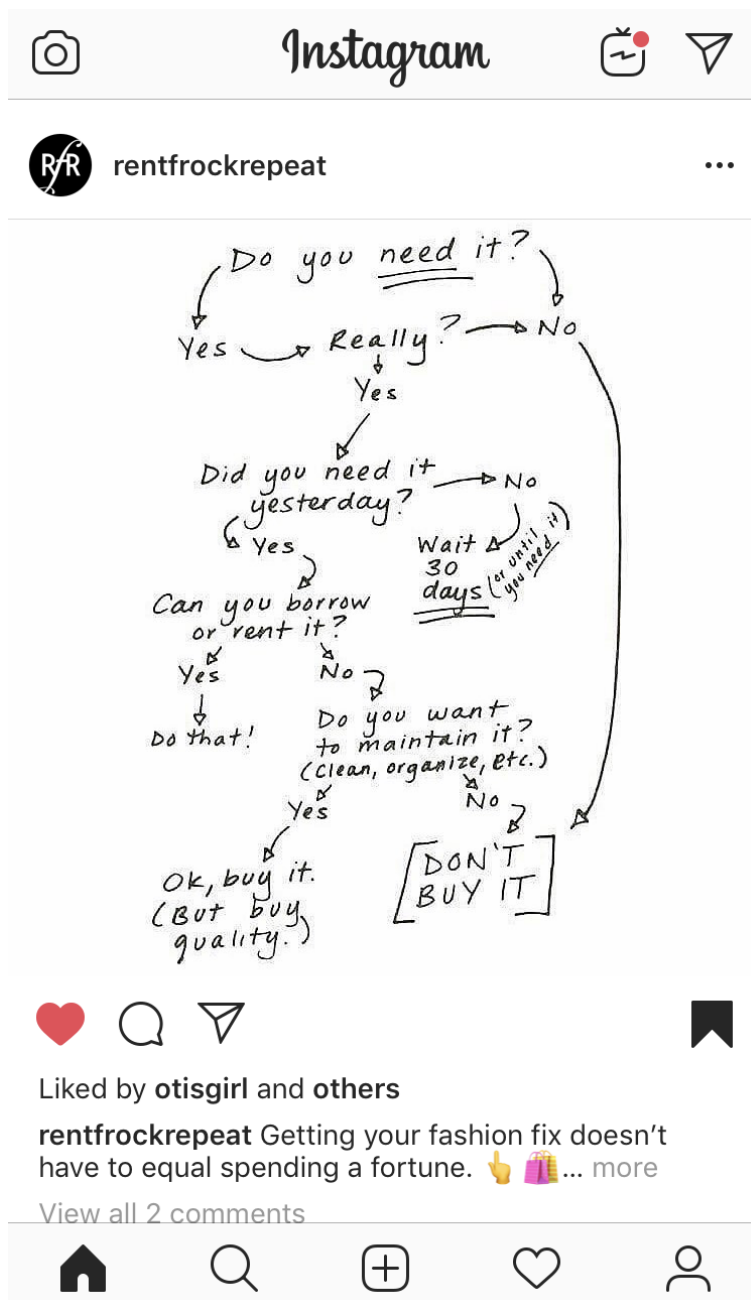 Instagram
RfR
rentfrockrepeat
Do you need it?
Yes
Really?
No
Yes
Did you need it
yesterday?
No
Yes
Wait
30
days
(or until it
you need)
Can you borrow
or rent it?
Yes
No
Do that!
Do you want
to maintain it?
(clean, organize, etc.)
Yes
No
Ok, buy it.
(But buy
quality.)
DON'T
BUY IT
Liked by otisgirl and others
rentfrockrepeat Getting your fashion fix doesn't
have to equal spending a fortune. 👆 🛍️... more
View all 2 comments